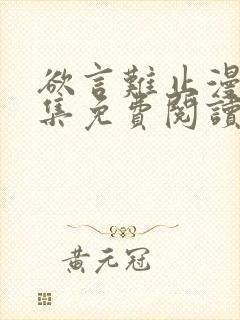 欲言難止漫
集免費閱讀
黃元冠